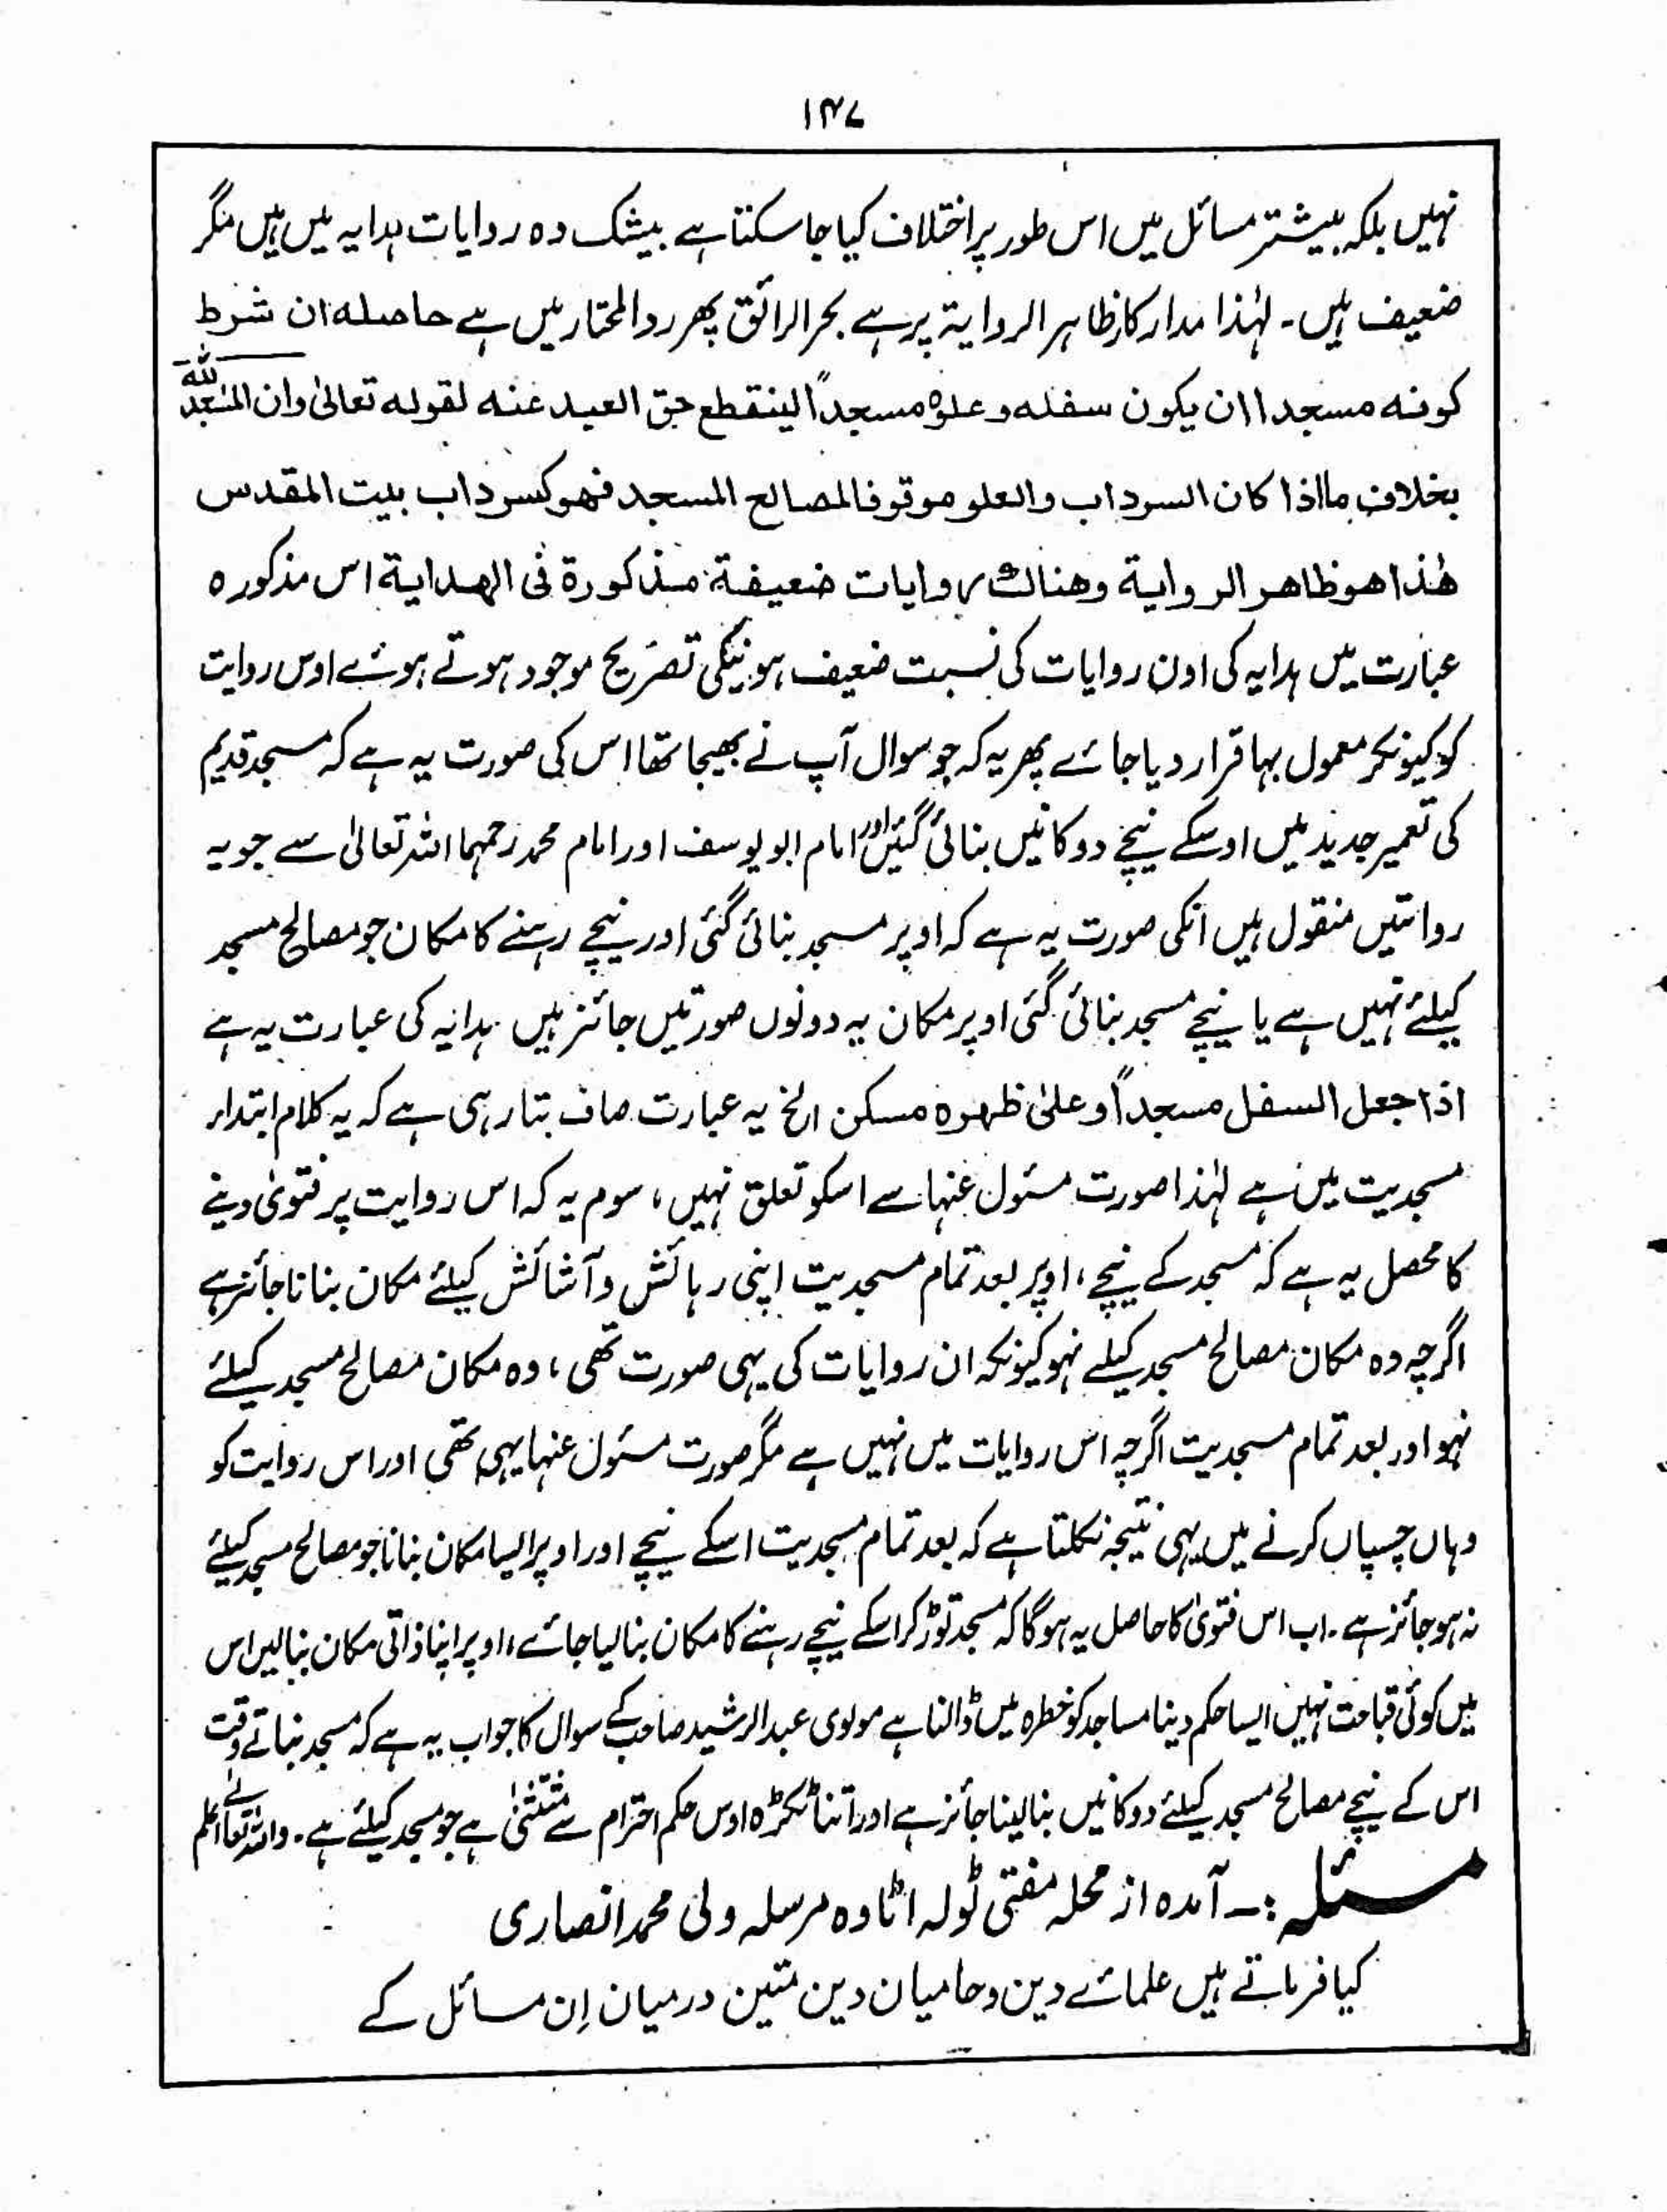 ۱۴۷
نہیں بلکہ بیشتر مسائل میں اس طور پر اختلاف کیا جاسکتا ہے بیشک وہ روایات ہدایہ میں ہیں مگر
ضعیف ہیں۔ لہٰذا مدار کار ظاہر الروایۃ پر ہے بحر الرائق پھر ردالمحتار میں ہے حاصله ان شرط
كونه مسجدا ان يكون سفله وعلوه مسجداً لينقطع حق العبد عنه لقوله تعالىٰ وان المسٰجد للّٰه
بخلاف ما اذا كان السرداب والعلو موقوفا لمصالح المسجد فهو كسرداب بيت المقدس
هٰذا هو ظاهر الرواية وهناك روايات ضعيفة مذكورة فى الهداية اس مذکورہ
عبارت میں ہدایہ کی اون روایات کی نسبت ضعیف ہونیکی تصریح موجود ہوتے ہوئے اوس روایت
کو کیونکر معمول بہا قرار دیا جائے پھر یہ کہ جو سوال آپ نے بھیجا تھا اس کی صورت یہ ہے کہ مسجد قدیم
کی تعمیر جدید میں اوسکے نیچے دوکانیں بنائی گئیں اور امام ابویوسف اور امام محمد رحمہما اللہ تعالیٰ سے جو یہ
روایتیں منقول ہیں انکی صورت یہ ہے کہ اوپر مسجد بنائی گئی اور نیچے رہنے کا مکان جو مصالح مسجد
کیلئے نہیں ہے یا نیچے مسجد بنائی گئی اوپر مکان یہ دونوں صورتیں جائز ہیں ہدایہ کی عبارت یہ ہے
اذا جعل السفل مسجداً وعلىٰ ظهره مسكن الخ یہ عبارت صاف بتا رہی ہے کہ یہ کلام ابتداء
مسجدیت میں ہے لہٰذا صورت مسئول عنہا سے اسکو تعلق نہیں، سوم یہ کہ اس روایت پر فتویٰ دینے
کا محصل یہ ہے کہ مسجد کے نیچے، اوپر بعد تمام مسجدیت اپنی رہائش و آشائش کیلئے مکان بنانا جائز ہے
اگرچہ وہ مکان مصالح مسجد کیلے نہو کیونکہ ان روایات کی یہی صورت تھی، وہ مکان مصالح مسجد کیلئے
نہو اور بعد تمام مسجدیت اگرچہ اس روایات میں نہیں ہے مگر صورت مسئول عنہا یہی تھی اور اس روایت کو
وہاں چسپاں کرنے میں یہی نتیجہ نکلتا ہے کہ بعد تمام مسجدیت اسکے نیچے اور اوپر ایسا مکان بنانا جو مصالح مسجد کیلئے
نہ ہو جائز ہے۔ اب اس فتویٰ کا حاصل یہ ہوگا کہ مسجد توڑ کر اسکے نیچے رہنے کا مکان بنالیا جائے، اوپر اپنا ذاتی مکان بنالیں اس
میں کوئی قباحت نہیں ایسا حکم دینا مساجد کو خطرہ میں ڈالنا ہے مولوی عبدالرشید صاحب کے سوال کا جواب یہ ہے کہ مسجد بناتے وقت
اس کے نیچے مصالح مسجد کیلئے دوکانیں بنالینا جائز ہے اور اتنا ٹکڑہ اوس حکم احترام سے مستثنیٰ ہے جو مسجد کیلئے ہے۔ واللہ تعالیٰ اعلم
مسئلہ:۔ آمدہ از محلہ مفتی ٹولہ اٹاوہ مرسلہ ولی محمد انصاری
کیا فرماتے ہیں علمائے دین و حامیان دین متین درمیان اِن مسائل کے